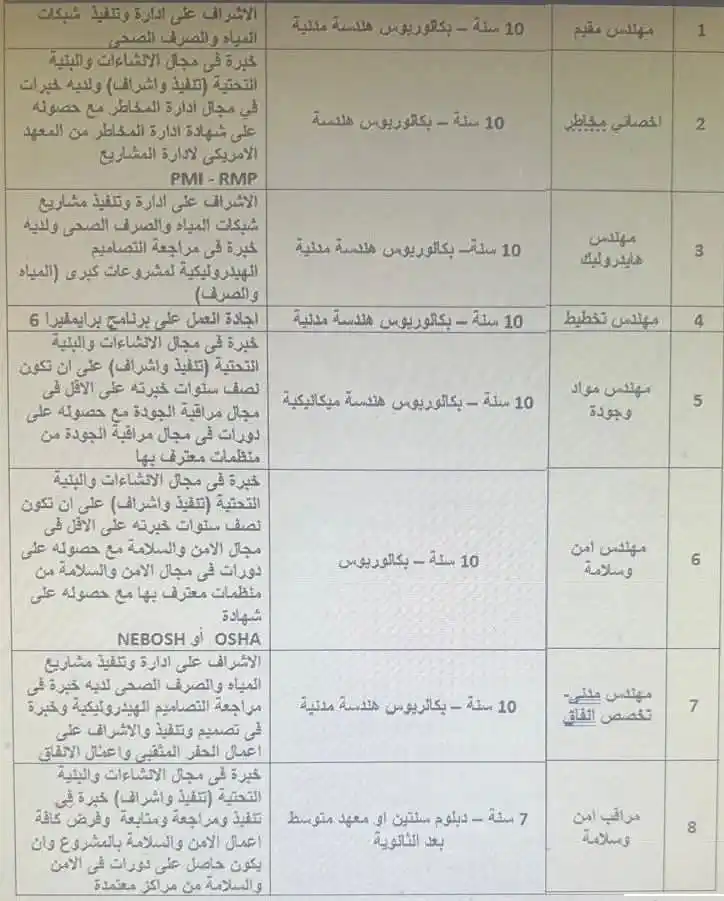 1
مهندس مقيم
10 سنة – بكالوريوس هندسة مدنية
الاشراف على ادارة وتنفيذ شبكات
المياه والصرف الصحى
2
اخصائي مخاطر
10 سنة – بكالوريوس هندسة
خبرة فى مجال الانشاءات والبنية
التحتية (تنفيذ واشراف) ولديه خبرات
في مجال ادارة المخاطر مع حصوله
على شهادة ادارة المخاطر من المعهد
الامريكى لادارة المشاريع
PMI - RMP
3
مهندس
هايدروليك
10 سنة– بكالوريوس هندسة مدنية
الاشراف على ادارة وتنفيذ مشاريع
شبكات المياه والصرف الصحى ولديه
خبرة فى مراجعة التصاميم
الهيدروليكية لمشروعات كبرى (المياه
والصرف)
4
مهندس تخطيط
10 سنة – بكالوريوس هندسة مدنية
اجادة العمل على برنامج برايمفيرا 6
5
مهندس مواد
وجودة
10 سنة – بكالوريوس هندسة ميكانيكية
خبرة فى مجال الانشاءات والبنية
التحتية (تنفيذ واشراف) على ان تكون
نصف سنوات خبرته على الاقل فى
مجال مراقبة الجودة مع حصوله على
دورات فى مجال مراقبة الجودة من
منظمات معترف بها
6
مهندس امن
وسلامة
10 سنة – بكالوريوس
خبرة فى مجال الانشاءات والبنية
التحتية (تنفيذ واشراف) على ان تكون
نصف سنوات خبرته على الاقل فى
مجال الامن والسلامة مع حصوله على
دورات فى مجال الامن والسلامة من
منظمات معترف بها مع حصوله على
شهادة
OSHA أو NEBOSH
7
مهندس مدنى-
تخصص انفاق
10 سنة – بكالريوس هندسة مدنية
الاشراف على ادارة وتنفيذ مشاريع
المياه والصرف الصحى لديه خبرة فى
مراجعة التصاميم الهيدروليكية وخبرة
فى تصميم وتنفيذ والاشراف على
اعمال الحفر المثقبى واعمال الانفاق
8
مراقب امن
وسلامة
7 سنة – دبلوم سنتين او معهد متوسط
بعد الثانوية
خبرة فى مجال الانشاءات والبنية
التحتية (تنفيذ واشراف) خبرة في
تنفيذ ومراجعة ومتابعة وفرض كافة
اعمال الامن والسلامة بالمشروع وان
يكون حاصل على دورات فى الامن
والسلامة من مراكز معتمدة